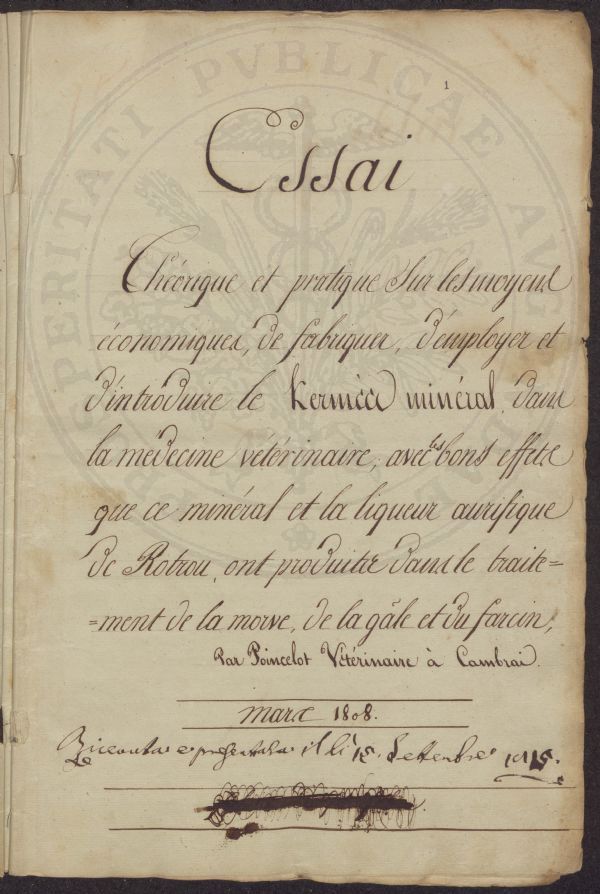 1
Essai
Théorique et pratique sur les moyens
économiques, de fabriquer, d'employer et
d'introduire le Kermès minéral, dans
la médecine vétérinaire, avec les bons effets
que ce minéral et la liqueur aurifique
de Rotrou, ont produits dans le traite=
=ment de la morve, de la gâle et du farcin,
Par Poincelot Vétérinaire à Cambrai.
mars 1808.
e presentata il li 15. Settembre 1815.
PROSPERITATI PVBLICAE AVG